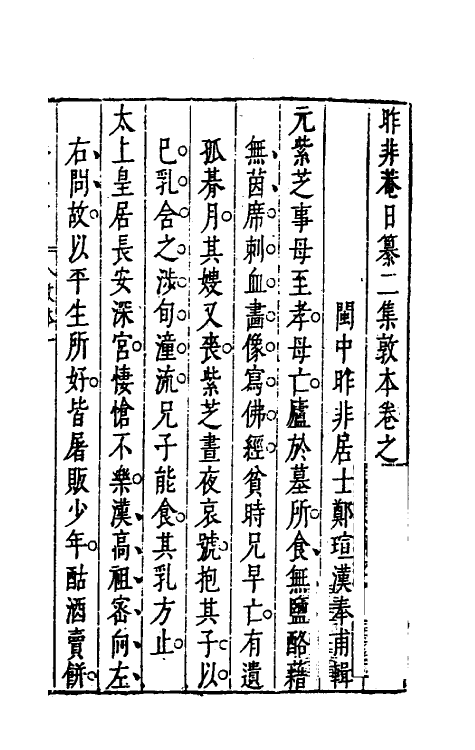 昨非菴日纂二集敦本卷之
閩中昨非居士鄭瑄漢奉甫輯
元紫芝事母至孝。母亡。廬於墓所。食、無鹽酪。藉、
無、茵、席。刺血畫像。寫佛經。貧時兄早亡。有遺
孤朞月。其嫂又喪。紫芝晝夜哀號。抱其子。以。
己。乳。含。之。涉。旬。湩。流。兄子能食。其乳方止。
太上皇居長安深宮。悽愴不樂。漢、高、祖、密、向、左、
右、問、故。以平生所好。皆屠販少年。酤酒賣餅。